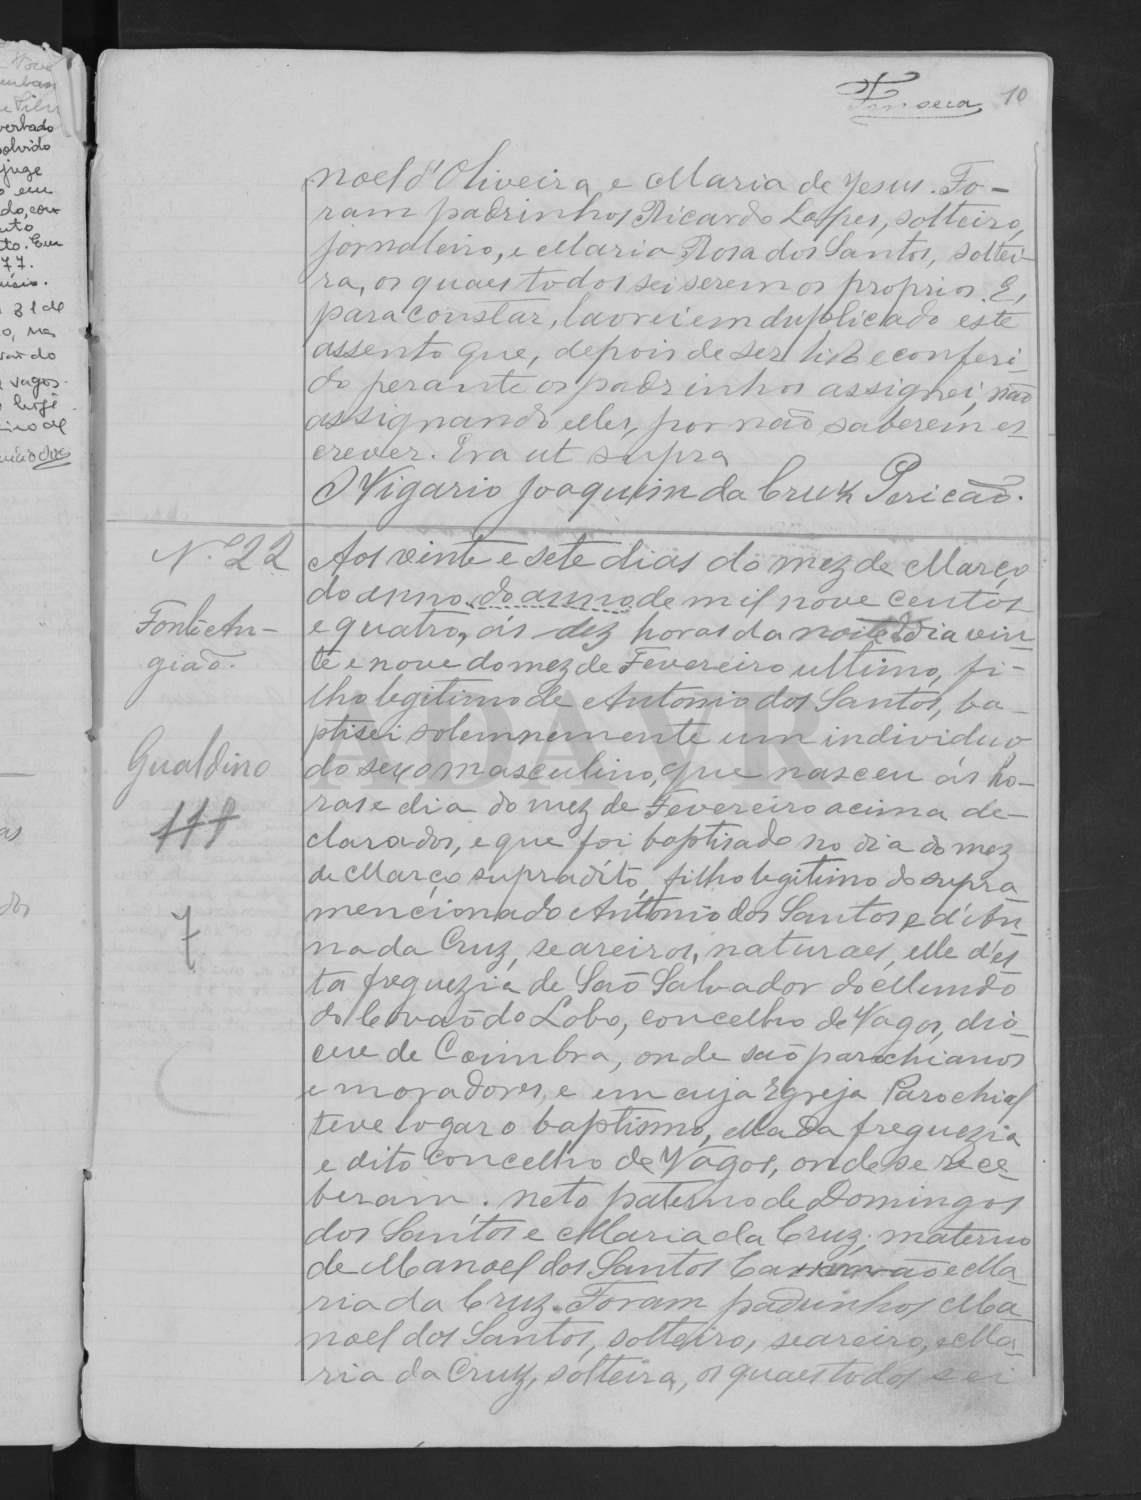 Fonseca 10
noel d'Oliveira, e Maria de Jesus. Fo-
ram padrinhos Ricardo Lopes, solteiro,
jornaleiro, e Maria Rosa dos Santos, soltei-
ra, os quaes todos sei serem os proprios. E,
para constar, lavrei em duplicado este
assento que, depois de ser lido e conferi-
do perante os padrinhos assignei, não
assignando elles, por não saberem es-
crever. Era ut supra
O Vigario Joaquim da Cruz Pericão.
N.º 22
Fonte An-
gião.
Gualdino
7
Aos vinte e sete dias do mez de Março
do anno do anno de mil nove centos
e quatro, ás dez horas da noite do dia vin-
te e nove do mez de Fevereiro ultimo, fi-
lho legitimo de Antonio dos Santos, ba-
ptisei solemnemente um individuo
do sexo masculino, que nasceu ás ho-
ras e dia do mez de Fevereiro acima de-
clarados, e que foi baptisado no dia do mez
de Março supradito, filho legitimo do supra
mencionado Antonio dos Santos e d'An-
na da Cruz, seareiros, naturaes, elle d'es-
ta freguezia de São Salvador do Mundo
do Covão do Lobo, concelho de Vagos, dio-
cese de Coimbra, onde são parochianos
e moradores, e em cuja Egreja Parochial
teve logar o baptismo, ella da freguezia
e dito concelho de Vagos, onde se rece-
beram. neto paterno de Domingos
dos Santos e Maria da Cruz; materno
de Manoel dos Santos e Ma-
ria da Cruz. Foram padrinhos, Ma-
noel dos Santos, solteiro, seareiro, e Ma-
ria da Cruz, solteira, os quaes todos sei
ADAVR